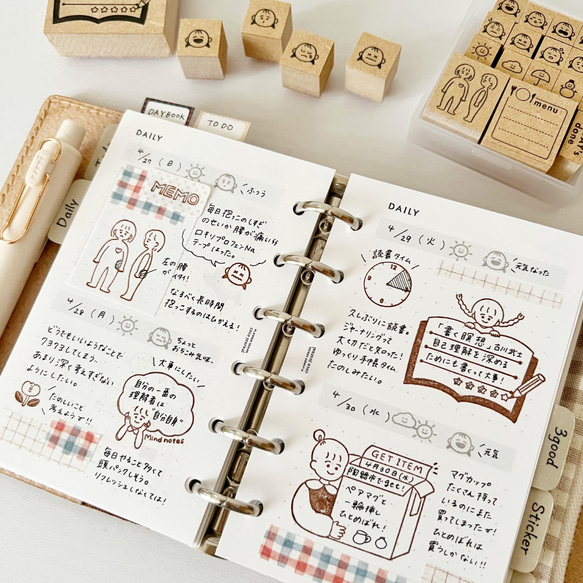 DAYBOOK
TO DO
Daily
DAILY
4/27 (日)
ふつう
MEMO
毎日抱っこのしすぎ
のせいか腰が痛いら
ロキソプロフェンNa
テープはった。
左の腰
がイタイ!
なるべく長時間
抱っこするのはひかえる!
4/28 (月)
ちょっと
お悩み気味。
どうでもいいようなことで
クヨクヨしてしまう。
あまり深く考えすぎない
ようにしたい。
大事にしたい
自分の一番の
理解者は
自分自身
Mind notes
たのしいこと
考えようー!!
毎日やること多くて
頭パンクしそう。
リフレッシュしなくては!
DAILY
4/29 (火)
元気なった
読書タイム
12
久しぶりに読書。
ジャーナリングって
大切だと思った!
ゆっくり手帳タイム
たのしみたい。
「書く瞑想」古川武士
自己理解を深める
ためにも書くって大事!
4/30 (水)
元気
GET ITEM
4月30日(水)
陶器市でget!
ペアマグ
一輪挿し
ひとめぼれ!
マグカップ
たくさん持って
いるのにまた
買ってしまったー!
ひとめぼれは
買うしかない!!
menu
done
3good
Sticker